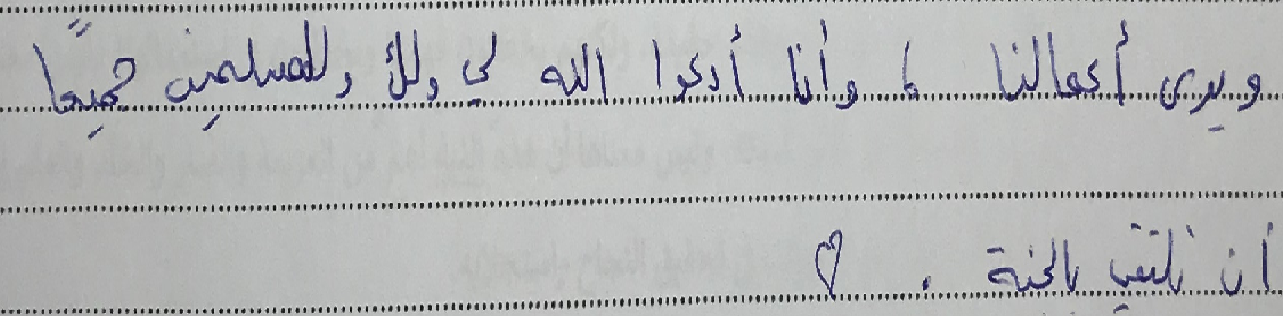 ويرى أعمالنا ، وأنا أدعوا الله لي ولك وللمسلمين جميعًا
أن نلتقي بالجنة . ♡